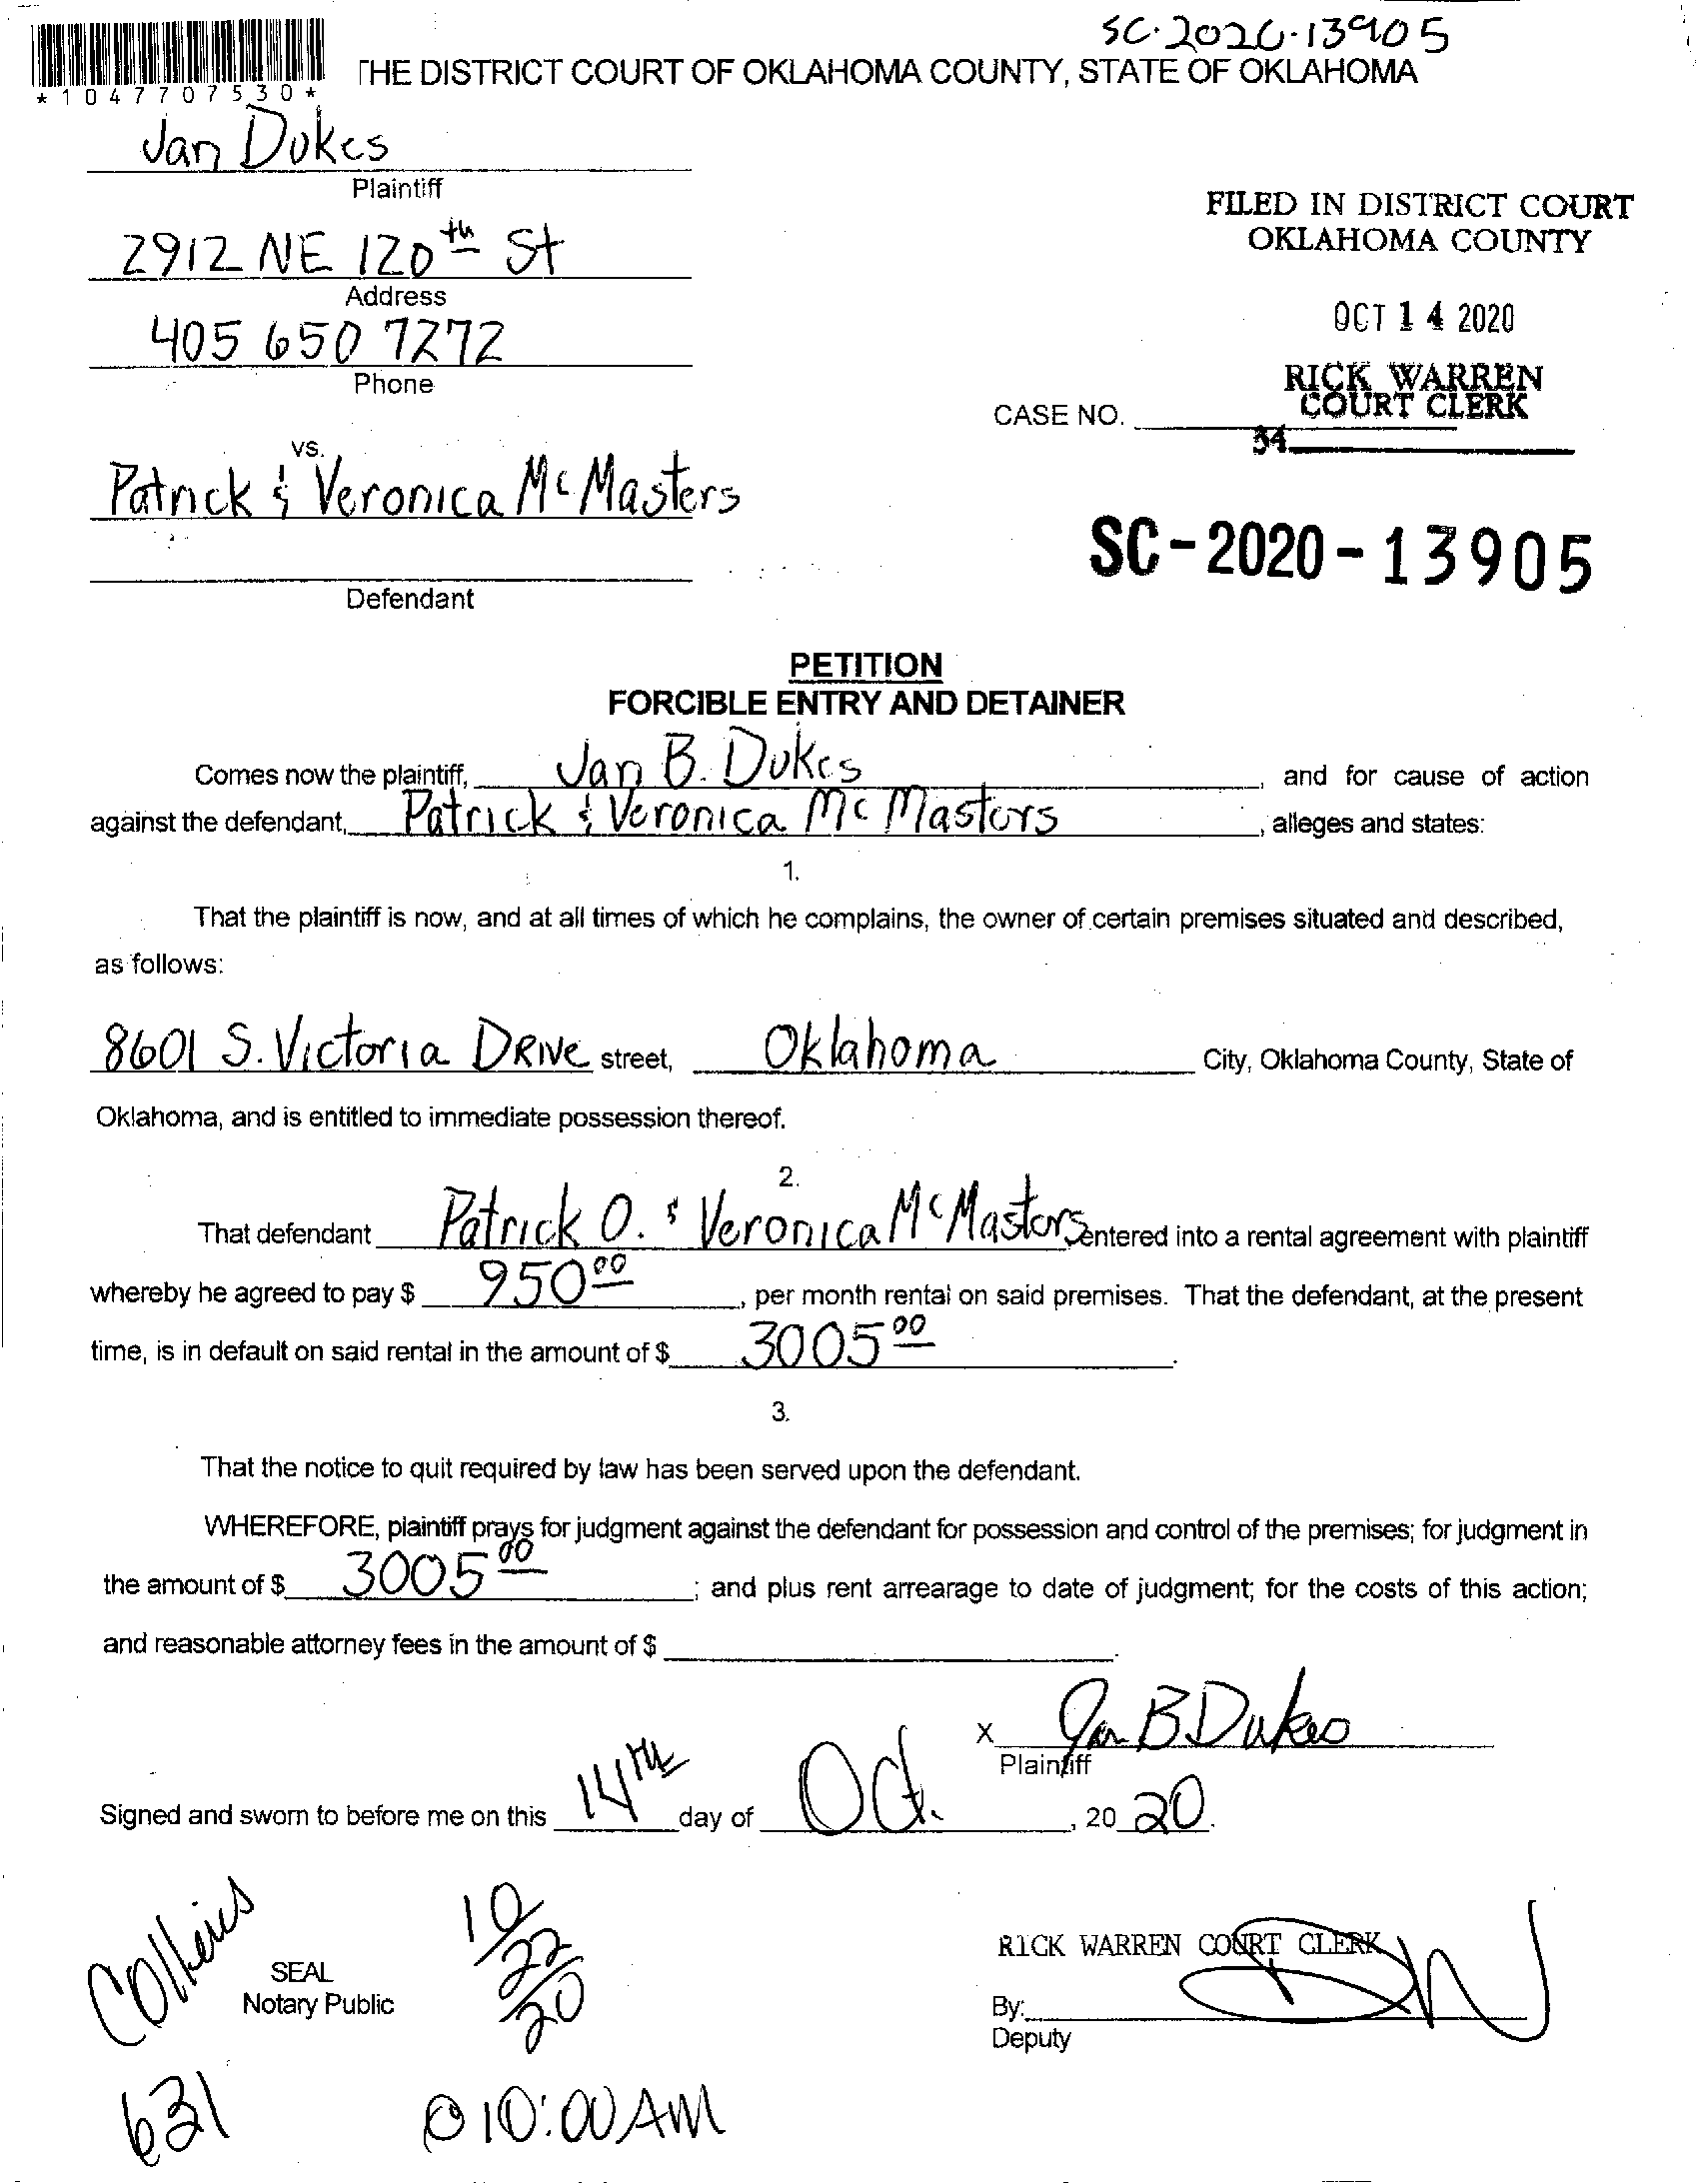 SC-2020-13905
THE DISTRICT COURT OF OKLAHOMA COUNTY, STATE OF OKLAHOMA
*1047707530*
Jan Dukes
Plaintiff
2912 NE 120th St
Address
405 650 7272
Phone
FILED IN DISTRICT COURT
OKLAHOMA COUNTY
OCT 14 2020
RICK WARREN
COURT CLERK
CASE NO.
34
vs.
Patrick & Veronica McMasters
Defendant
SC-2020-13905
PETITION
FORCIBLE ENTRY AND DETAINER
Comes now the plaintiff, Jan B. Dukes, and for cause of action
against the defendant, Patrick & Veronica McMasters, alleges and states:
1.
That the plaintiff is now, and at all times of which he complains, the owner of certain premises situated and described,
as follows:
8601 S. Victoria DRIVE street, Oklahoma City, Oklahoma County, State of
Oklahoma, and is entitled to immediate possession thereof.
2.
That defendant Patrick O. & Veronica McMasters entered into a rental agreement with plaintiff
whereby he agreed to pay $ 950.00, per month rental on said premises. That the defendant, at the present
time, is in default on said rental in the amount of $ 3005.00.
3.
That the notice to quit required by law has been served upon the defendant.
WHEREFORE, plaintiff prays for judgment against the defendant for possession and control of the premises; for judgment in
the amount of $ 3005.00; and plus rent arrearage to date of judgment; for the costs of this action;
and reasonable attorney fees in the amount of $
X Jan B Dukes
Plaintiff
Signed and sworn to before me on this 14th day of Oct., 20 20.
Collins
10/22/20
SEAL
Notary Public
RICK WARREN COURT CLERK
By:
Deputy
631
@ 10:00 AM